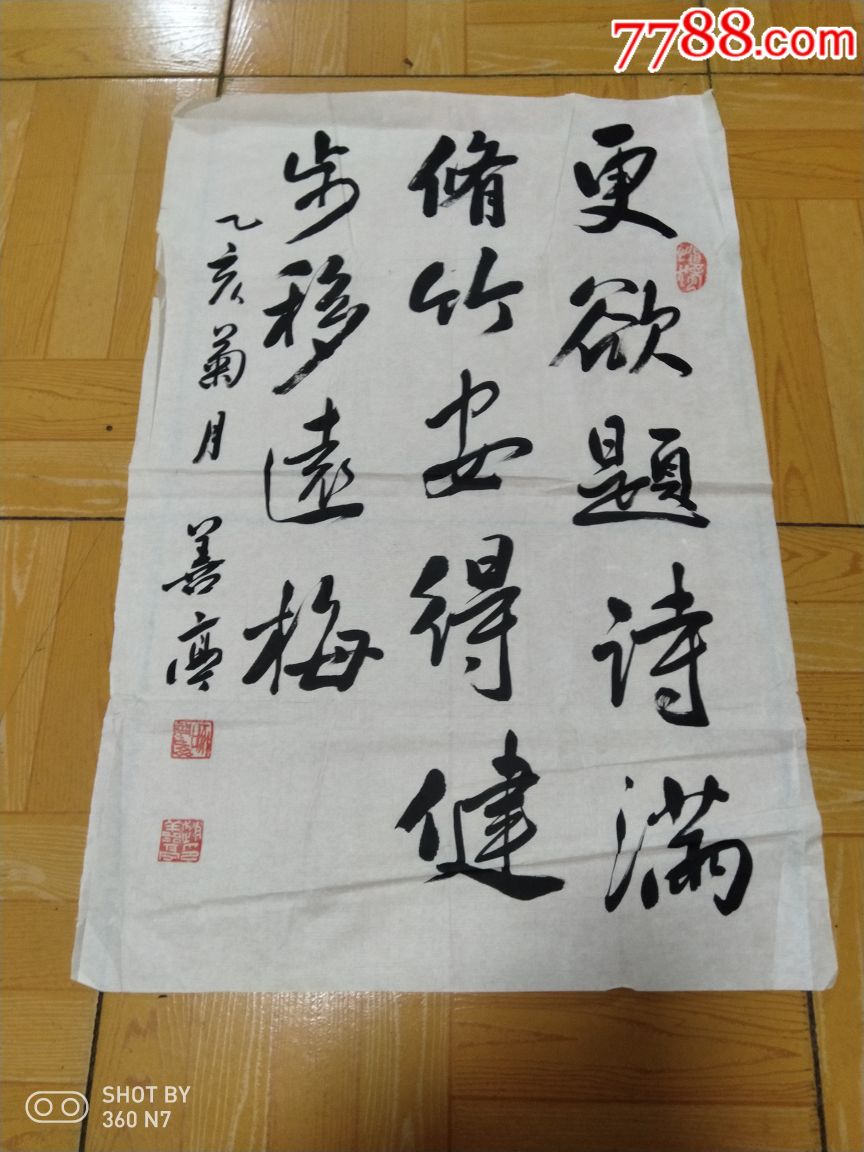 7788.com
更欲题诗满
脩竹安得健
步移远梅
乙亥菊月 善亭
SHOT BY
360 N7